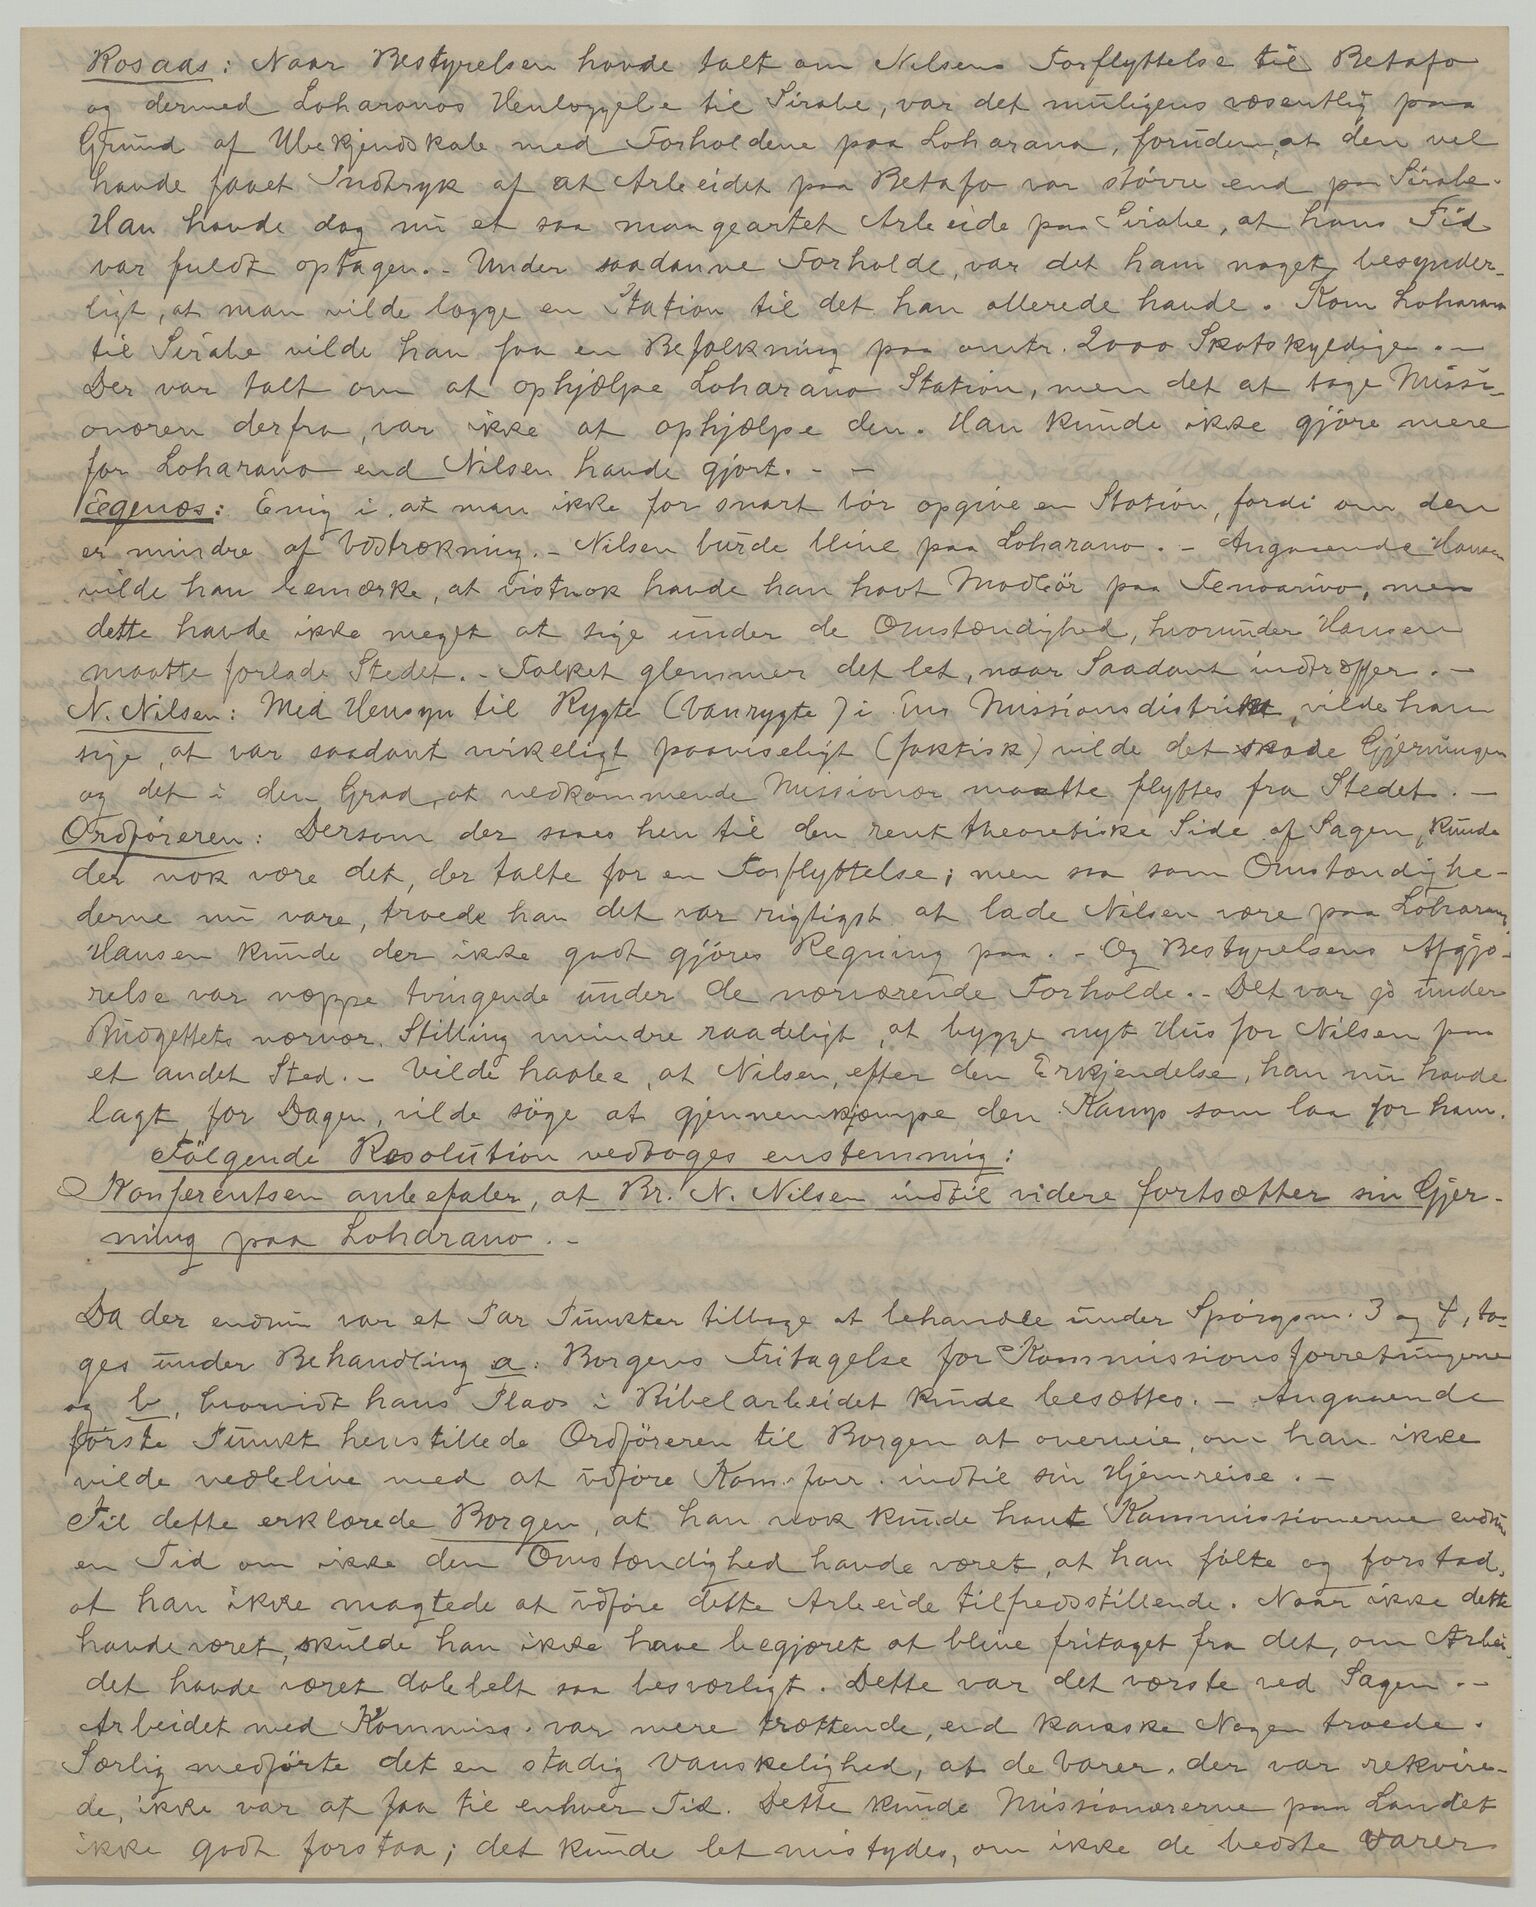 Rosaas: Naar Bestyrelsen havde talt om Nilsens Forflyttelse til Betafo
og dermed Loharanos Henlæggelse til Sirabe, var det muligens væsentlig paa
Grund af Ubekjendskab med Forholdene paa Loharano, foruden, at den vel
havde faaet Indtryk af at Arbeidet paa Betafo var større end paa Sirabe.
Han havde dog nu et saa mangeartet Arbeide paa Sirabe, at hans Tid
var fuldt optagen. - Under saadanne Forholde, var det ham noget besynder-
ligt, at man vilde lægge en Station til det han allerede havde. Kom Loharano
til Sirabe vilde han faa en Befolkning paa omtr. 2000 Skatskyldige. -
Der var talt om at ophjælpe Loharano Station, men det at tage Missi-
onæren derfra, var ikke at ophjælpe den. Han kunde ikke gjøre mere
for Loharano end Nilsen havde gjort. - -
Egenæs: Enig i, at man ikke for snart bør opgive en Station, fordi om den
er mindre af Udstrækning. - Nilsen burde blive paa Loharano. - Angaaende Hansen
vilde han bemærke, at vistnok havde han havt Modbør paa Fenoarivo, men
dette havde ikke meget at sige under de Omstændighed, hvorunder Hansen
maatte forlade Stedet. - Folket glemmer det let, naar Saadant indtræffer. -
N. Nilsen: Med Hensyn til Rygte (Vanrygte) i Ens Missionsdistrikt, vilde han
sige, at var saadant virkeligt paaviseligt (faktisk) vilde det skade Gjerningen
og det i den Grad, at vedkommende Missionær maatte flyttes fra Stedet. -
Ordføreren: Dersom der saaes hen til den rent theoretiske Side af Sagen, kunde
der nok være det, der talte for en Forflyttelse; men saa som Omstændighe-
derne nu vare, troede han det var rigtigst at lade Nilsen være paa Loharano,
Hansen kunde der ikke godt gjøres Regning paa. - Og Bestyrelsens Afgjø-
relse var næppe tvingende under de nærværende Forholde. - Det var jo under
Budgettets nærvær. Stilling mindre raadeligt, at bygge nyt Hus for Nilsen paa
et andet Sted. - Vilde haabe, at Nilsen, efter den Erkjendelse, han nu havde
lagt for Dagen, vilde søge at gjennemkjæmpe den Kamp som laa for ham.
Følgende Resolution vedtoges enstemmig:
Konferentsen anbefaler, at Br. N. Nilsen indtil videre fortsætter sin Gjer-
ning paa Loharano. -
Da der endnu var et Par Punkter tilbage at behandle under Spørgsm. 3 og 4, to-
ges under Behandling a: Borgens Fritagelse for Kommissionsforretningerne
og b, hvorvidt hans Plads i Bibelarbeidet kunde besættes. - Angaaende
første Punkt henstillede Ordføreren til Borgen at overveie, om han ikke
vilde vedblive med at udføre Kom. forr. indtil sin Hjemreise. -
Til dette erklærede Borgen, at han nok kunde havt Kommissionerne endnu
en Tid om ikke den Omstændighed havde været, at han følte og forstod,
at han ikke magtede at udføre dette Arbeide tilfredsstillende. Naar ikke dette
havde været, skulde han ikke have begjæret at blive fritaget fra det, om Arbei-
det havde været dobbelt saa besværligt. Dette var det værste ved Sagen. -
Arbeidet med Kommiss. var mere trættende, end kanske Nogen troede.
Særlig medførte det en stadig Vanskelighed, at de Varer, der var rekvire-
de, ikke var at faa til enhver Tid. Dette kunde Missionærerne paa Landet
ikke godt forstaa; det kunde let mistydes, om ikke de bedste Varer